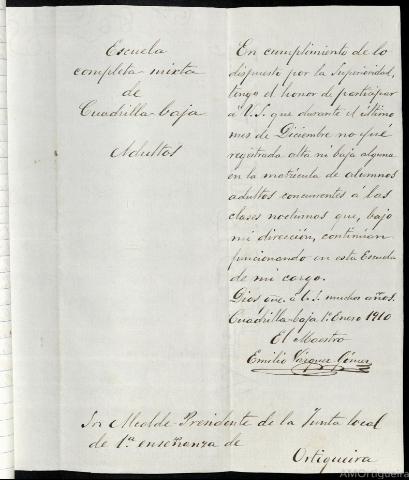 Escuela
completa mixta
de
Cuadrilla-baja
Adultos
En cumplimiento de lo
dispuesto por la Superioridad,
tengo el honor de participar
á V.S. que durante el último
mes de Diciembre no fué
registrada alta ni baja alguna
en la matrícula de alumnos
adultos concurrentes á las
clases nocturnas que, bajo
mi dirección, continúan
funcionando en esta Escuela
de mi cargo.
Dios gue. á V.S. muchos años.
Cuadrilla-baja 1º Enero 1910
El Maestro
Emilio Vázquez Gómez
Sr. Alcalde-Presidente de la Junta local
de 1ª enseñanza de
Ortigueira
AMOrtigueira